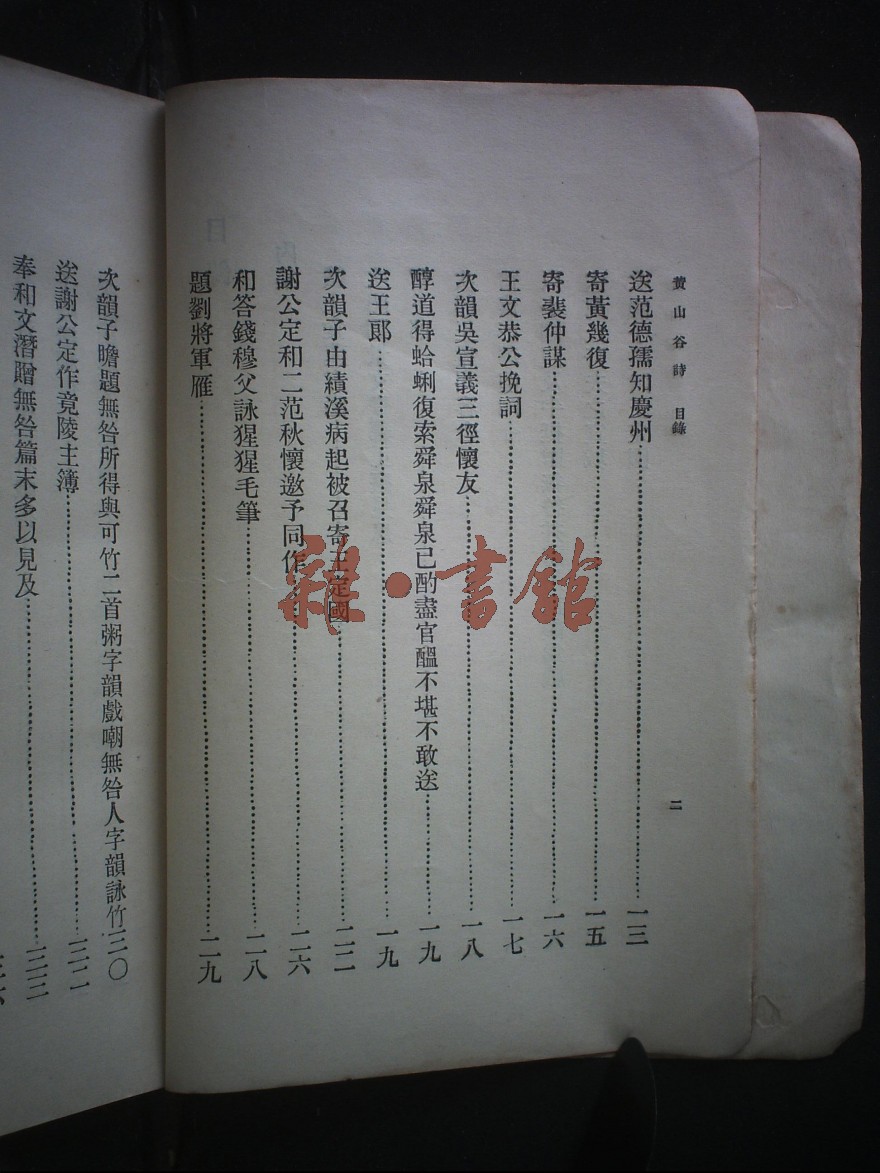 黄山谷詩 目錄 二
送范德孺知慶州……一三
寄黃幾復……一五
寄裴仲謀……一六
王文恭公挽詞……一七
次韻吳宣義三徑懷友……一八
醇道得蛤蜊復索舜泉舜泉已酌盡官醞不堪不敢送……一九
送王郎……一九
次韻子由績溪病起被召寄王定國……二二
謝公定和二范秋懷邀予同作……二六
和答錢穆父詠猩猩毛筆……二八
題劉將軍雁……二九
次韻子瞻題無咎所得與可竹二首粥字韻戲嘲無咎人字韻詠竹三〇
送謝公定作竟陵主簿……三二
奉和文潛贈無咎篇末多以見及……三三
雜·書館